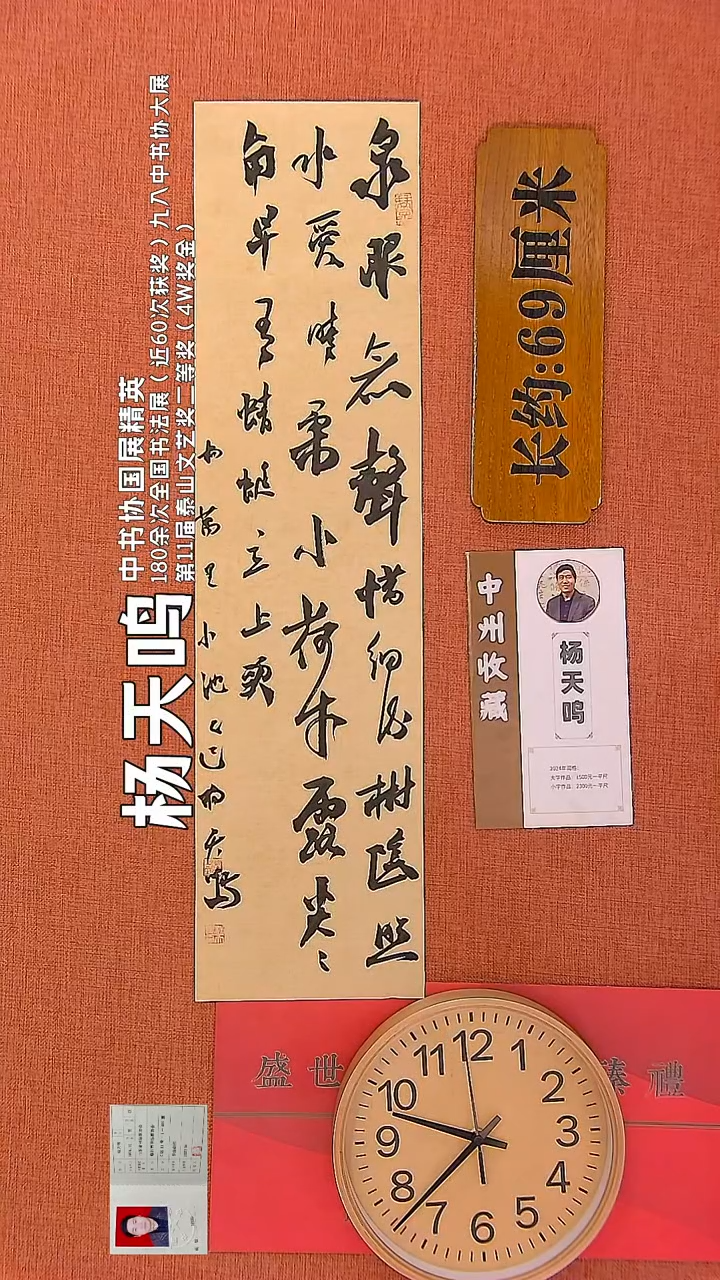 杨天鸣
中书协国展精英
180余次全国书法展（近60次获奖）九八中书协大展
第11届泰山文艺奖二等奖（4W奖金）
泉眼无聲惜細流樹陰照
水愛晴柔小荷才露尖〻
角早有蜻蜓立上頭
萬里小池乙巳杨天鳴
长约:69厘米
中州收藏
杨天鸣
大字作品：1500元一平尺
小字作品：2300元一平尺
盛世
禮
12
1
2
3
4
5
6
7
8
9
10
11